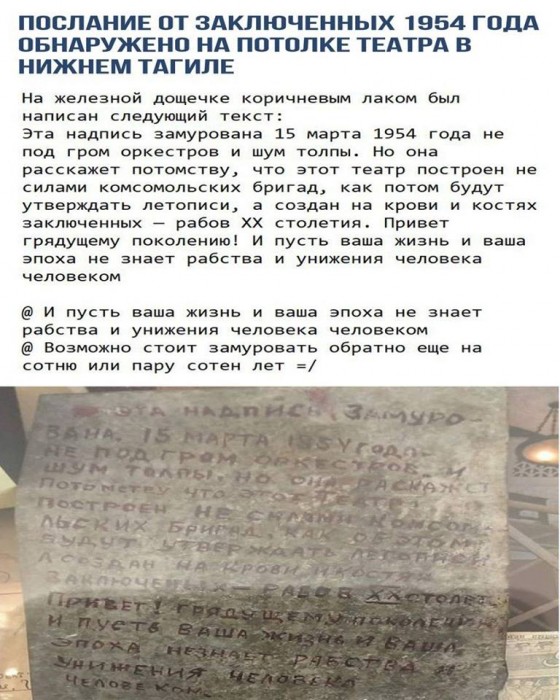 ПОСЛАНИЕ ОТ ЗАКЛЮЧЕННЫХ 1954 ГОДА
ОБНАРУЖЕНО НА ПОТОЛКЕ ТЕАТРА В
НИЖНЕМ ТАГИЛЕ
На железной дощечке коричневым лаком был
написан следующий текст:
Эта надпись замурована 15 марта 1954 года не
под гром оркестров и шум толпы. Но она
расскажет потомству, что этот театр построен не
силами комсомольских бригад, как потом будут
утверждать летописи, а создан на крови и костях
заключенных — рабов XX столетия. Привет
грядущему поколению! И пусть ваша жизнь и ваша
эпоха не знает рабства и унижения человека
человеком
@ И пусть ваша жизнь и ваша эпоха не знает
рабства и унижения человека человеком
@ Возможно стоит замуровать обратно еще на
сотню или пару сотен лет =/
ЭТА НАДПИСЬ ЗАМУРО-
ВАНА. 15 МАРТА 1954 ГОДА
НЕ ПОД ГРОМ ОРКЕСТРОВ И
ШУМ ТОЛПЫ. НО ОНА
ПОТОМСТВУ ЧТО ЭТОТ ТЕАТР
ПОСТРОЕН НЕ СИЛАМИ КОМСОМО-
ЛЬСКИХ БРИГАД, КАК ОБ ЭТОМ
БУДУТ УТВЕРЖДАТЬ ЛЕТОПИСИ
А СОЗДАН НА КРОВИ И КОСТЯХ
ЗАКЛЮЧЕННЫХ — РАБОВ XX СТОЛЕТ
ПРИВЕТ! ГРЯДУЩЕМУ ПОКОЛЕНИЮ
И ПУСТЬ ВАША ЖИЗНЬ И ВАША
ЭПОХА НЕЗНАЕТ РАБСТВА И
УНИЖЕНИЯ ЧЕЛОВЕКА
ЧЕЛОВЕКОМ.